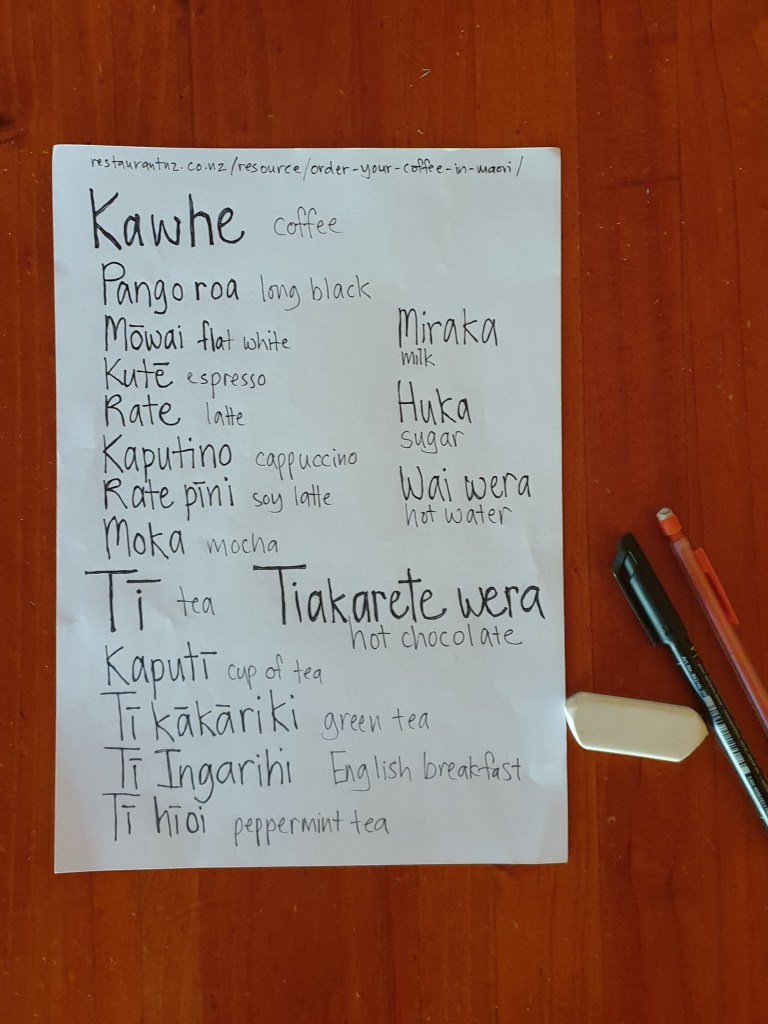 restaurantnz.co.nz/resource/order-your-coffee-in-maori/
Kawhe coffee
Pango roa long black
Mōwai flat white
Kutē espresso
Rate latte
Kaputino cappuccino
Rate pīni soy latte
Moka mocha
Miraka
milk
Huka
sugar
Wai wera
hot water
Tī tea
Tiakarete wera
hot chocolate
Kaputī cup of tea
Tī kākāriki green tea
Tī Ingarihi English breakfast
Tī hīoi peppermint tea